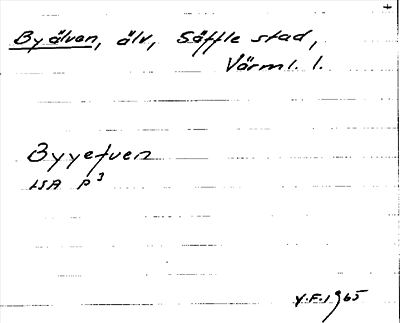 Byälven, älv, Säffle stad,
Värml. l.
Byyefven
LSA P³
Y.F. 1965